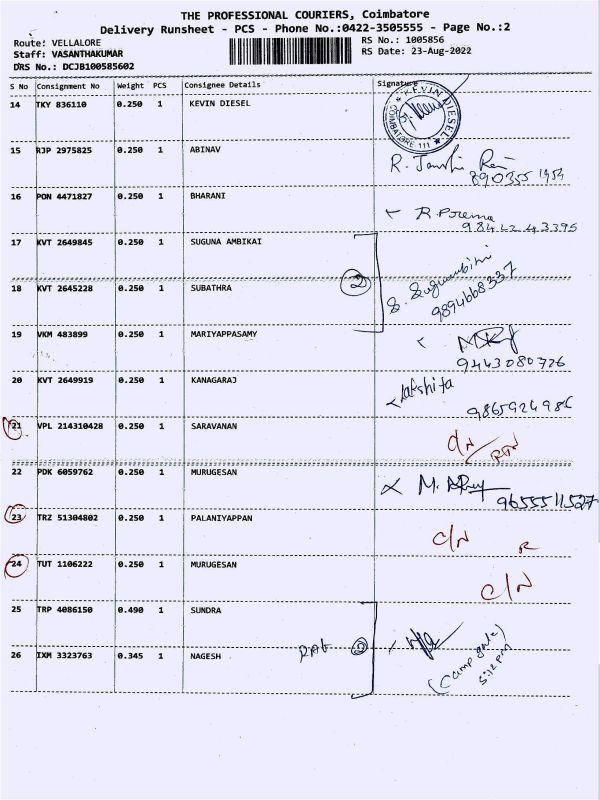 THE PROFESSIONAL COURIERS, Coimbatore
Delivery Runsheet - PCS - Phone No.:0422-3505555 - Page No.:2
Route: VELLALORE RS No.: 1005856
Staff: VASANTHAKUMAR RS Date: 23-Aug-2022
DRS No.: DCJB100585602
S No Consignment No Weight PCS Consignee Details Signature
14 TKY 836110 0.250 1 KEVIN DIESEL
KEVIN DIESEL COIMBATORE
15 RJP 2975825 0.250 1 ABINAV
16 PON 4471827 0.250 1 BHARANI
98422 43395
17 KVT 2649845 0.250 1 SUGUNA AMBIKAI
18 KVT 2645228 0.250 1 SUBATHRA 2
9894668337
19 VKM 483899 0.250 1 MARIYAPPASAMY
9443080726
20 KVT 2649919 0.250 1 KANAGARAJ Lakshita
21 VPL 214310428 0.250 1 SARAVANAN
22 PDK 6059762 0.250 1 MURUGESAN
9655511527
23 TRZ 51304802 0.250 1 PALANIYAPPAN C/N R
24 TUT 1106222 0.250 1 MURUGESAN C/N
25 TRP 4086150 0.490 1 SUNDRA
26 IXM 3323763 0.345 1 NAGESH 2
(Camp gate)
5:12 PM